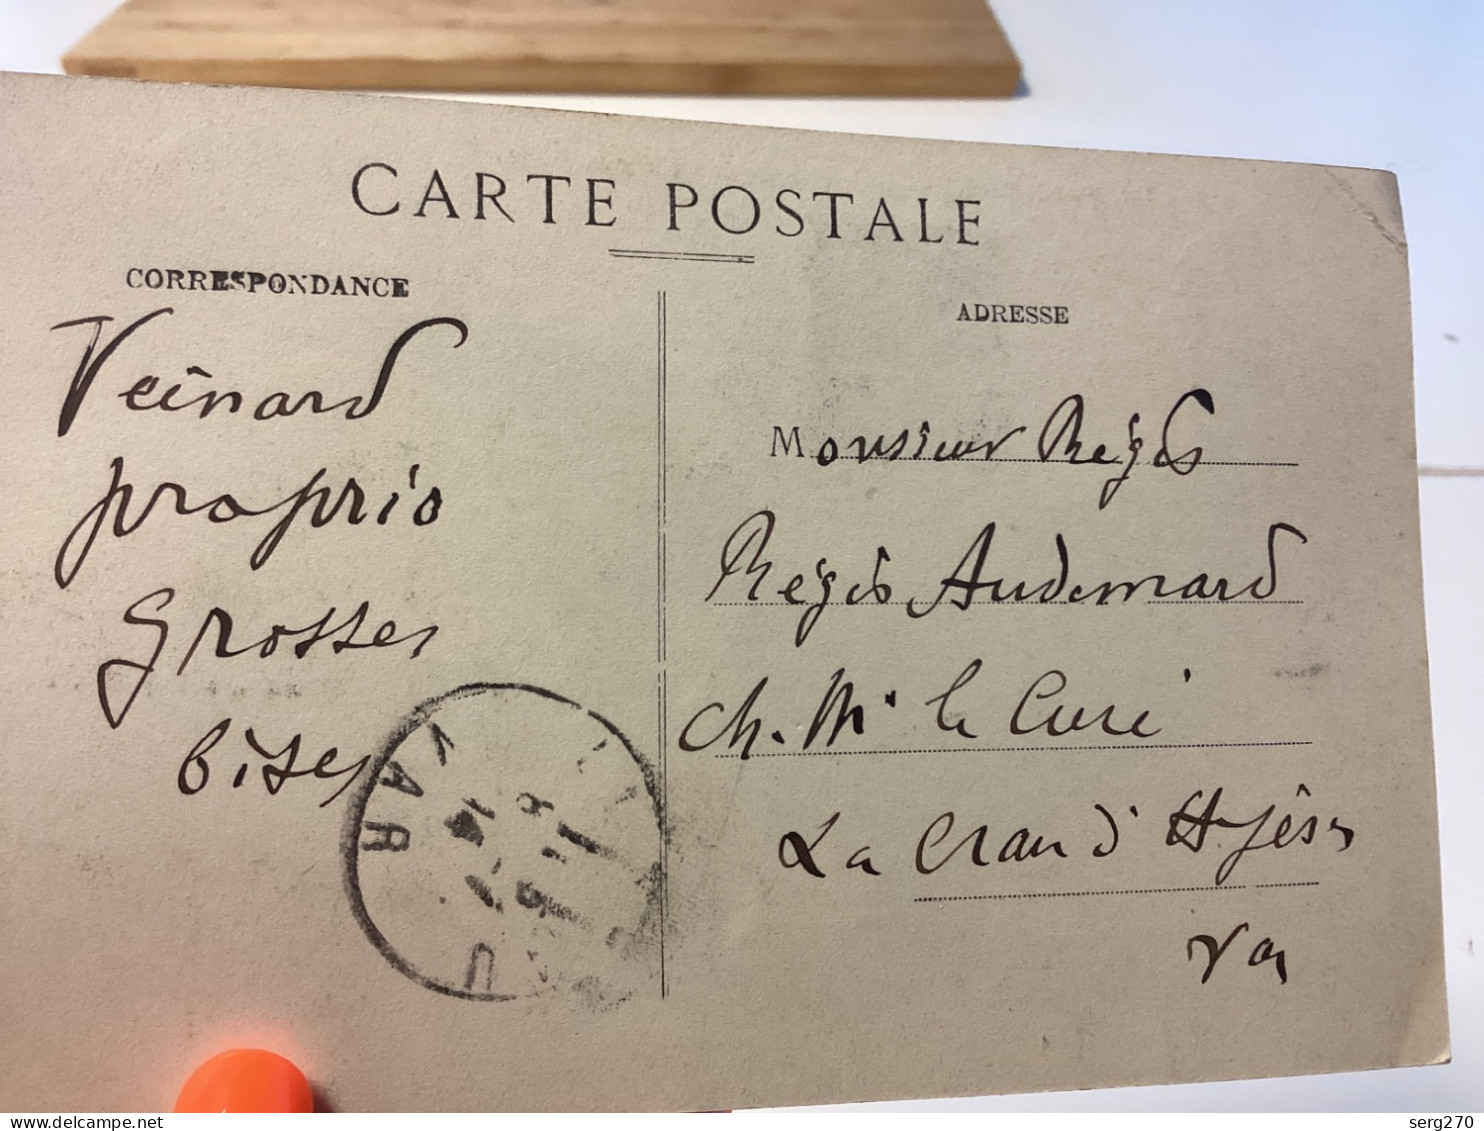 CARTE POSTALE
CORRESPONDANCE
Veinard
proprio
grosses
bises
ADRESSE
Monsieur Régis
Régis Audemard
ch. Mr le Curé
La Crau d'Hyères
Var
VAR
serg270